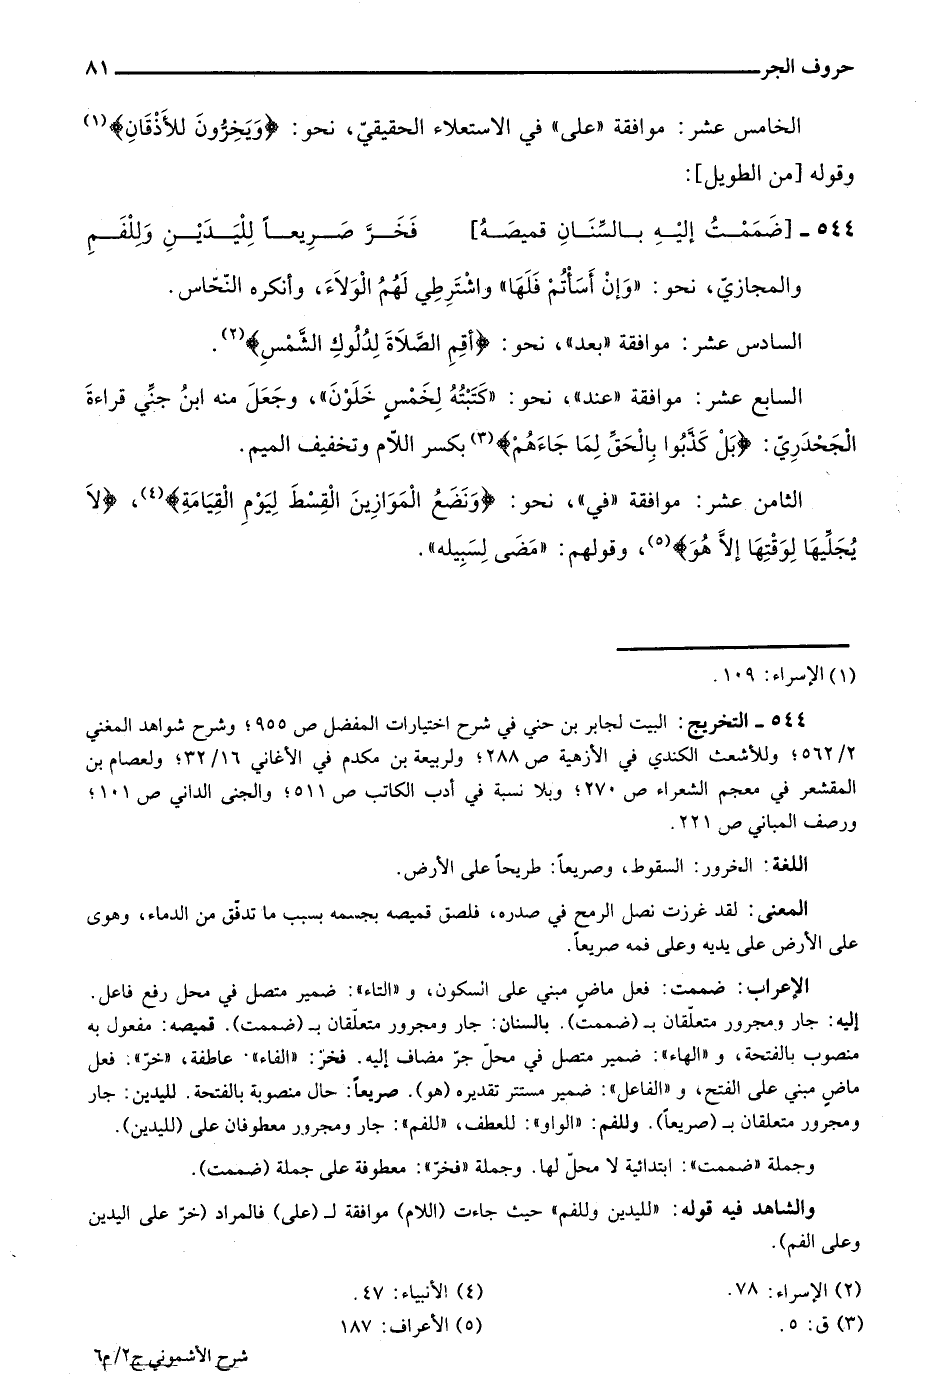 حروف الجر ٨١
الخامس عشر: موافقة «على» في الاستعلاء الحقيقيّ، نحو: ﴿وَيَخِرُّونَ للأَذْقَانِ﴾(١)
وقوله [من الطويل]:
٥٤٤ ـ [ضَمَمْتُ إلَيْهِ بالسِّنَانِ قميصَهُ] فَخَرَّ صَرِيعاً لِلْيَدَيْنِ وَلِلْفَمِ
والمجازيّ، نحو: «وَإِنْ أَسَأْتُمْ فَلَهَا» واشْتَرِطِي لَهُمُ الْوَلاَءَ، وأنكره النّحّاس.
السادس عشر: موافقة «بعد»، نحو: ﴿أَقِمِ الصَّلاَةَ لِدُلُوكِ الشَّمْسِ﴾(٢).
السابع عشر: موافقة «عند»، نحو: «كَتَبْتُهُ لِخَمْسٍ خَلَوْنَ»، وجَعَلَ منه ابنُ جنِّي قراءةَ
الْجَحْدَرِيّ: ﴿بَلْ كَذَّبُوا بِالْحَقِّ لِمَا جَاءَهُمْ﴾(٣) بكسر اللّام وتخفيف الميم.
الثامن عشر: موافقة «في»، نحو: ﴿وَنَضَعُ الْمَوَازِينَ الْقِسْطَ لِيَوْمِ الْقِيَامَةِ﴾(٤)، ﴿لاَ
يُجَلِّيهَا لِوَقْتِهَا إلاَّ هُوَ﴾(٥)، وقولهم: «مَضَى لِسَبِيله».
(١) الإسراء: ١٠٩.
٥٤٤ ـ التخريج: البيت لجابر بن حني في شرح اختيارات المفضل ص ٩٥٥؛ وشرح شواهد المغني
٥٦٢/٢؛ وللأشعث الكندي في الأزهية ص ٢٨٨؛ ولربيعة بن مكدم في الأغاني ٣٢/١٦؛ ولعصام بن
المقشعر في معجم الشعراء ص ٢٧٠؛ وبلا نسبة في أدب الكاتب ص ٥١١؛ والجنى الداني ص ١٠١؛
ورصف المباني ص ٢٢١.
اللغة: الخرور: السقوط، وصريعاً: طريحاً على الأرض.
المعنى: لقد غرزت نصل الرمح في صدره، فلصق قميصه بجسمه بسبب ما تدفّق من الدماء، وهوى
على الأرض على يديه وعلى فمه صريعاً.
الإعراب: ضممت: فعل ماضٍ مبني على السكون، و «التاء»: ضمير متصل في محل رفع فاعل.
إليه: جار ومجرور متعلّقان بـ (ضممت). بالسنان: جار ومجرور متعلّقان بـ (ضممت). قميصه: مفعول به
منصوب بالفتحة، و «الهاء»: ضمير متصل في محلّ جرّ مضاف إليه. فخرّ: «الفاء» عاطفة، «خرّ»: فعل
ماضٍ مبني على الفتح، و «الفاعل»: ضمير مستتر تقديره (هو). صريعاً: حال منصوبة بالفتحة. لليدين: جار
ومجرور متعلقان بـ (صريعاً). وللفم: «الواو»: للعطف، «للفم»: جار ومجرور معطوفان على (لليدين).
وجملة «ضممت»: ابتدائية لا محلّ لها. وجملة «فخرّ»: معطوفة على جملة (ضممت).
والشاهد فيه قوله: «لليدين وللفم» حيث جاءت (اللام) موافقة لـ (على) فالمراد (خرّ على اليدين
وعلى الفم).
(٢) الإسراء: ٧٨. (٤) الأنبياء: ٤٧.
(٣) ق: ٥. (٥) الأعراف: ١٨٧
شرح الأشموني ج٢/ م٦